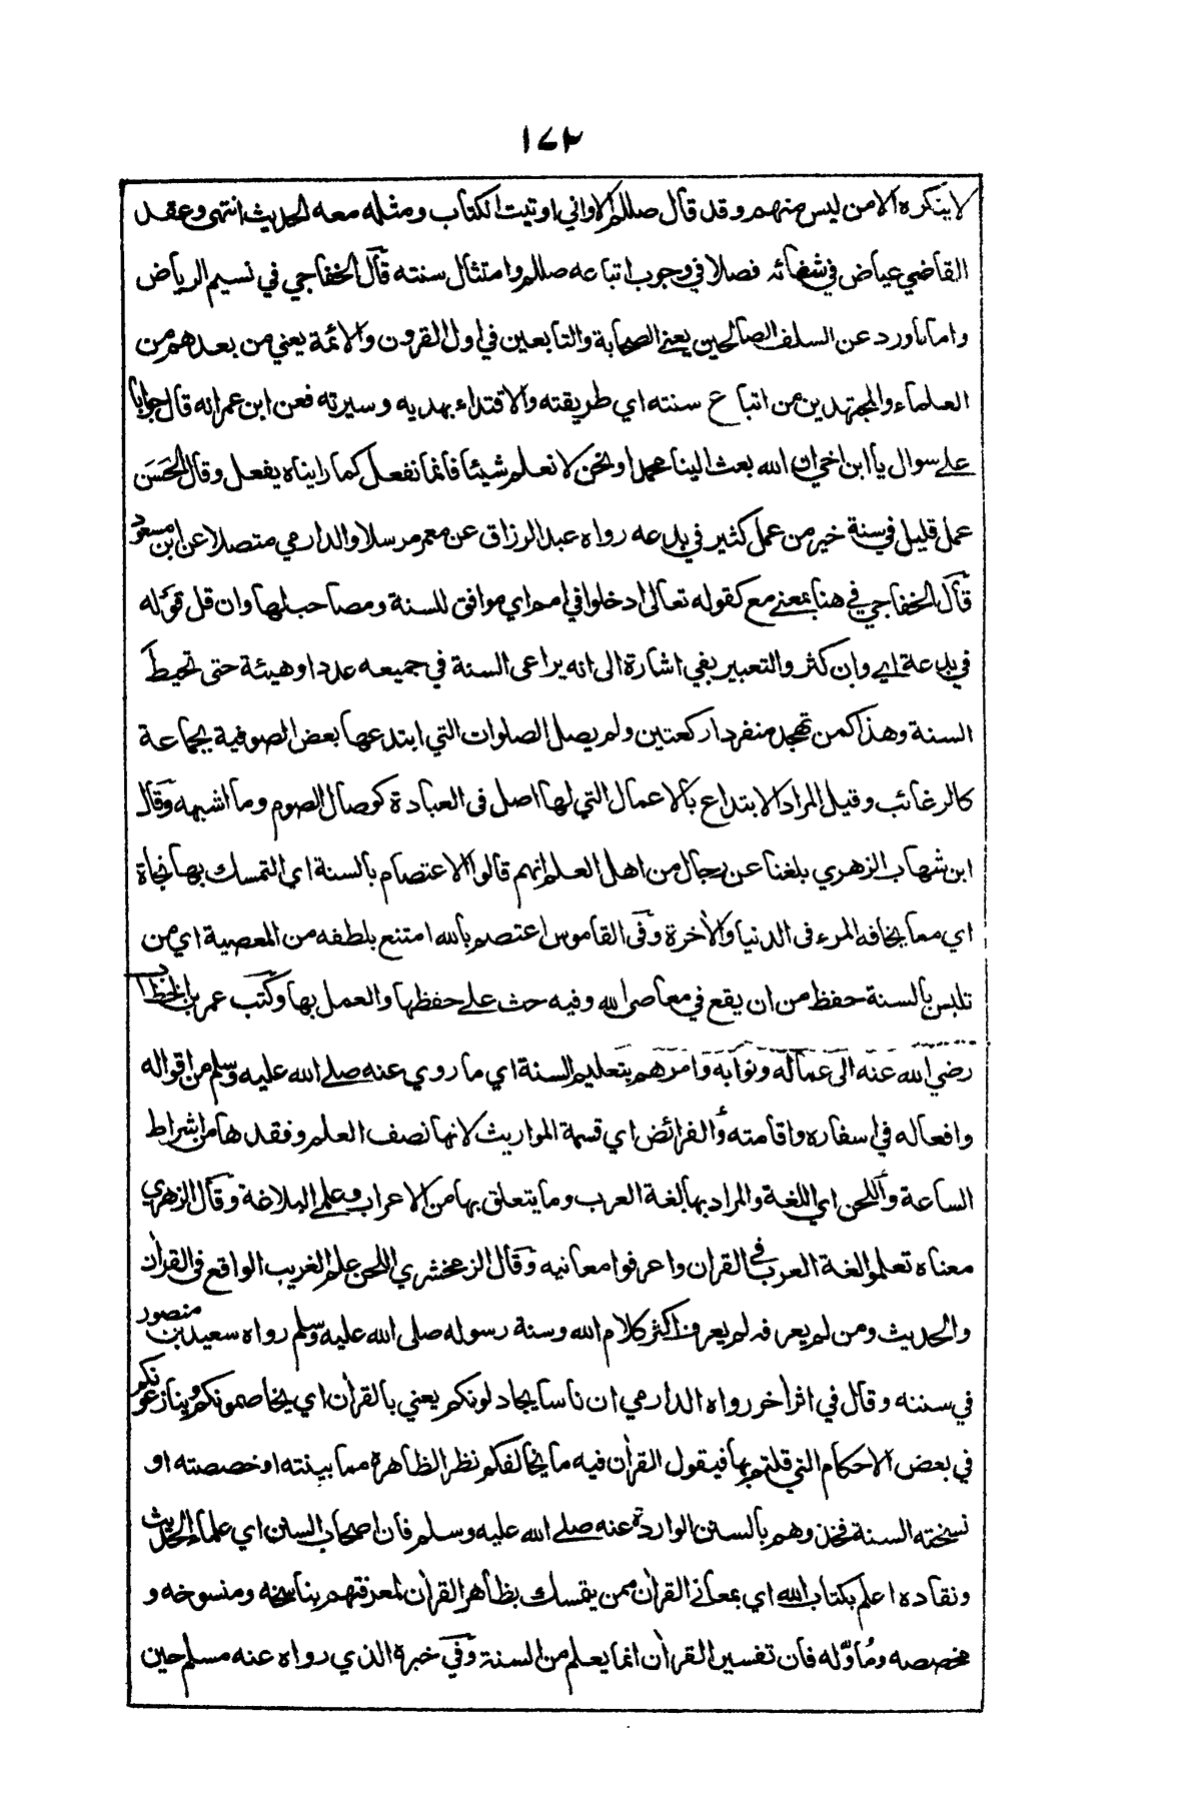 ١٧٢
لا ينكره الا من ليس منهم وقد قال صللم الا واني اوتيت الكتاب ومثله معه الحديث انتهى وعقد
القاضي عياض في شفائه فصلا في وجوب اتباعه صللم وامتثال سنته قال الخفاجي في نسيم الرياض
واما ما ورد عن السلف الصالحين يعني الصحابة والتابعين في اول القرون والائمة يعني من بعدهم من
العلماء والمجتهدين من اتباع سنته اي طريقته والاقتداء بهديه وسيرته فعن ابن عمر انه قال جوابا
على سوال يا ابن اخي ان الله بعث الينا محمدا ونحن لا نعلم شيئا فانما نفعل كما رايناه يفعل وقال الحسن
عمل قليل في سنة خير من عمل كثير في بدعه رواه عبد الرزاق عن معمر مرسلا والدارمي متصلا عن ابن مسعود
قال الخفاجي في هنا بمعنى مع كقوله تعالى ادخلوا في امم اي موافق للسنة ومصاحب لها وان قل قوله
في بدعة اي وان كثر والتعبير بفي اشارة الى انه يراعى السنة في جميعه عددا وهيئة حتى تحيط
السنة وهذا كمن تهجد منفردا ركعتين ولم يصل الصلوات التي ابتدعها بعض الصوفية بجماعة
كالرغائب وقيل المراد الابتداع بالاعمال التي لها اصل في العبادة كوصال الصوم وما اشبهه وقال
ابن شهاب الزهري بلغنا عن رجال من اهل العلم انهم قالوا الاعتصام بالسنة اي التمسك بها نجاة
اي مما يخافه المرء في الدنيا والآخرة وفي القاموس اعتصم بالله امتنع بلطفه من المعصية اي من
تلبس بالسنة حفظ من ان يقع في معاصي الله وفيه حث على حفظها والعمل بها وكتب عمر بن الخطاب
رضي الله عنه الى عماله ونوابه وامرهم بتعليم السنة اي ما روي عنه صلى الله عليه وسلم من اقواله
وافعاله في اسفاره واقامته والفرائض اي قسمة المواريث لانها نصف العلم وفقدها من اشراط
الساعة واللحن اي اللغة والمراد بها لغة العرب وما يتعلق بها من الاعراب وعلم البلاغة وقال الزهري
معناه تعلموا لغة العرب في القران واعرفوا معانيه وقال الزمخشري اللحن علم الغريب الواقع في القرآن
والحديث ومن لم يعرفه لم يعرف اكثر كلام الله وسنة رسوله صلى الله عليه وسلم رواه سعيد بن منصور
في سننه وقال في اثر اخر رواه الدارمي ان ناسا يجادلونكم يعني بالقرآن اي يخاصمونكم وينازعونكم
في بعض الاحكام التي قلتم بها فيقول القرآن فيه ما يخالفكم نظر الظاهره مما بينته او خصصته او
نسخته السنة فخذوهم بالسنن الواردة عنه صلى الله عليه وسلم فان اصحاب السنن اي علماء الحديث
ونقاده اعلم بكتاب الله اي بمعاني القرآن ممن يتمسك بظاهر القرآن لمعرفتهم بناسخه ومنسوخه و
مخصصه ومأوله فان تفسير القرآن انما يعلم من السنة وفي خبره الذي رواه عنه مسلم حين